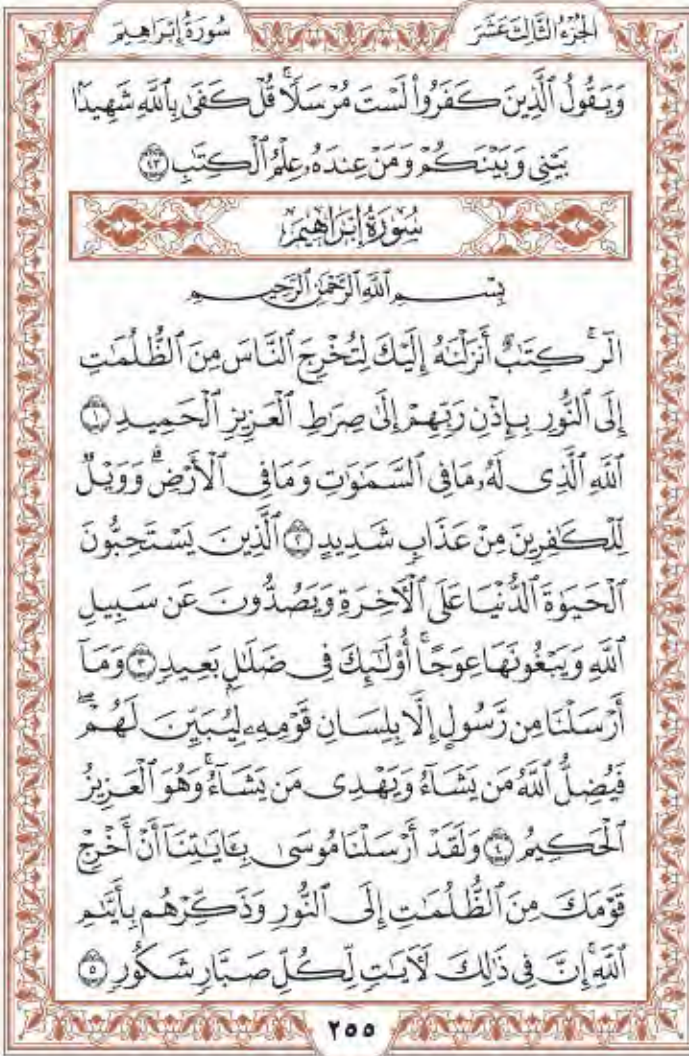 الجُزْءُ الثَّالِثَ عَشَرَ
سُورَةُ إِبْرَاهِيمَ
وَيَقُولُ ٱلَّذِينَ كَفَرُوا۟ لَسْتَ مُرْسَلًا ۚ قُلْ كَفَىٰ بِٱللَّهِ شَهِيدًۢا
بَيْنِى وَبَيْنَكُمْ وَمَنْ عِندَهُۥ عِلْمُ ٱلْكِتَٰبِ ٤٣
سُورَةُ إِبْرَاهِيمَ
بِسْمِ ٱللَّهِ ٱلرَّحْمَٰنِ ٱلرَّحِيمِ
الٓر ۚ كِتَٰبٌ أَنزَلْنَٰهُ إِلَيْكَ لِتُخْرِجَ ٱلنَّاسَ مِنَ ٱلظُّلُمَٰتِ
إِلَى ٱلنُّورِ بِإِذْنِ رَبِّهِمْ إِلَىٰ صِرَٰطِ ٱلْعَزِيزِ ٱلْحَمِيدِ ١
ٱللَّهِ ٱلَّذِى لَهُۥ مَا فِى ٱلسَّمَٰوَٰتِ وَمَا فِى ٱلْأَرْضِ ۗ وَوَيْلٌ
لِّلْكَٰفِرِينَ مِنْ عَذَابٍ شَدِيدٍ ٢ ٱلَّذِينَ يَسْتَحِبُّونَ
ٱلْحَيَوٰةَ ٱلدُّنْيَا عَلَى ٱلْءَاخِرَةِ وَيَصُدُّونَ عَن سَبِيلِ
ٱللَّهِ وَيَبْغُونَهَا عِوَجًا ۚ أُو۟لَٰٓئِكَ فِى ضَلَٰلٍۭ بَعِيدٍ ٣ وَمَآ
أَرْسَلْنَا مِن رَّسُولٍ إِلَّا بِلِسَانِ قَوْمِهِۦ لِيُبَيِّنَ لَهُمْ ۖ
فَيُضِلُّ ٱللَّهُ مَن يَشَآءُ وَيَهْدِى مَن يَشَآءُ ۚ وَهُوَ ٱلْعَزِيزُ
ٱلْحَكِيمُ ٤ وَلَقَدْ أَرْسَلْنَا مُوسَىٰ بِـَٔايَٰتِنَآ أَنْ أَخْرِجْ
قَوْمَكَ مِنَ ٱلظُّلُمَٰتِ إِلَى ٱلنُّورِ وَذَكِّرْهُم بِأَيَّىٰمِ
ٱللَّهِ ۚ إِنَّ فِى ذَٰلِكَ لَءَايَٰتٍ لِّكُلِّ صَبَّارٍ شَكُورٍ ٥
٢٥٥